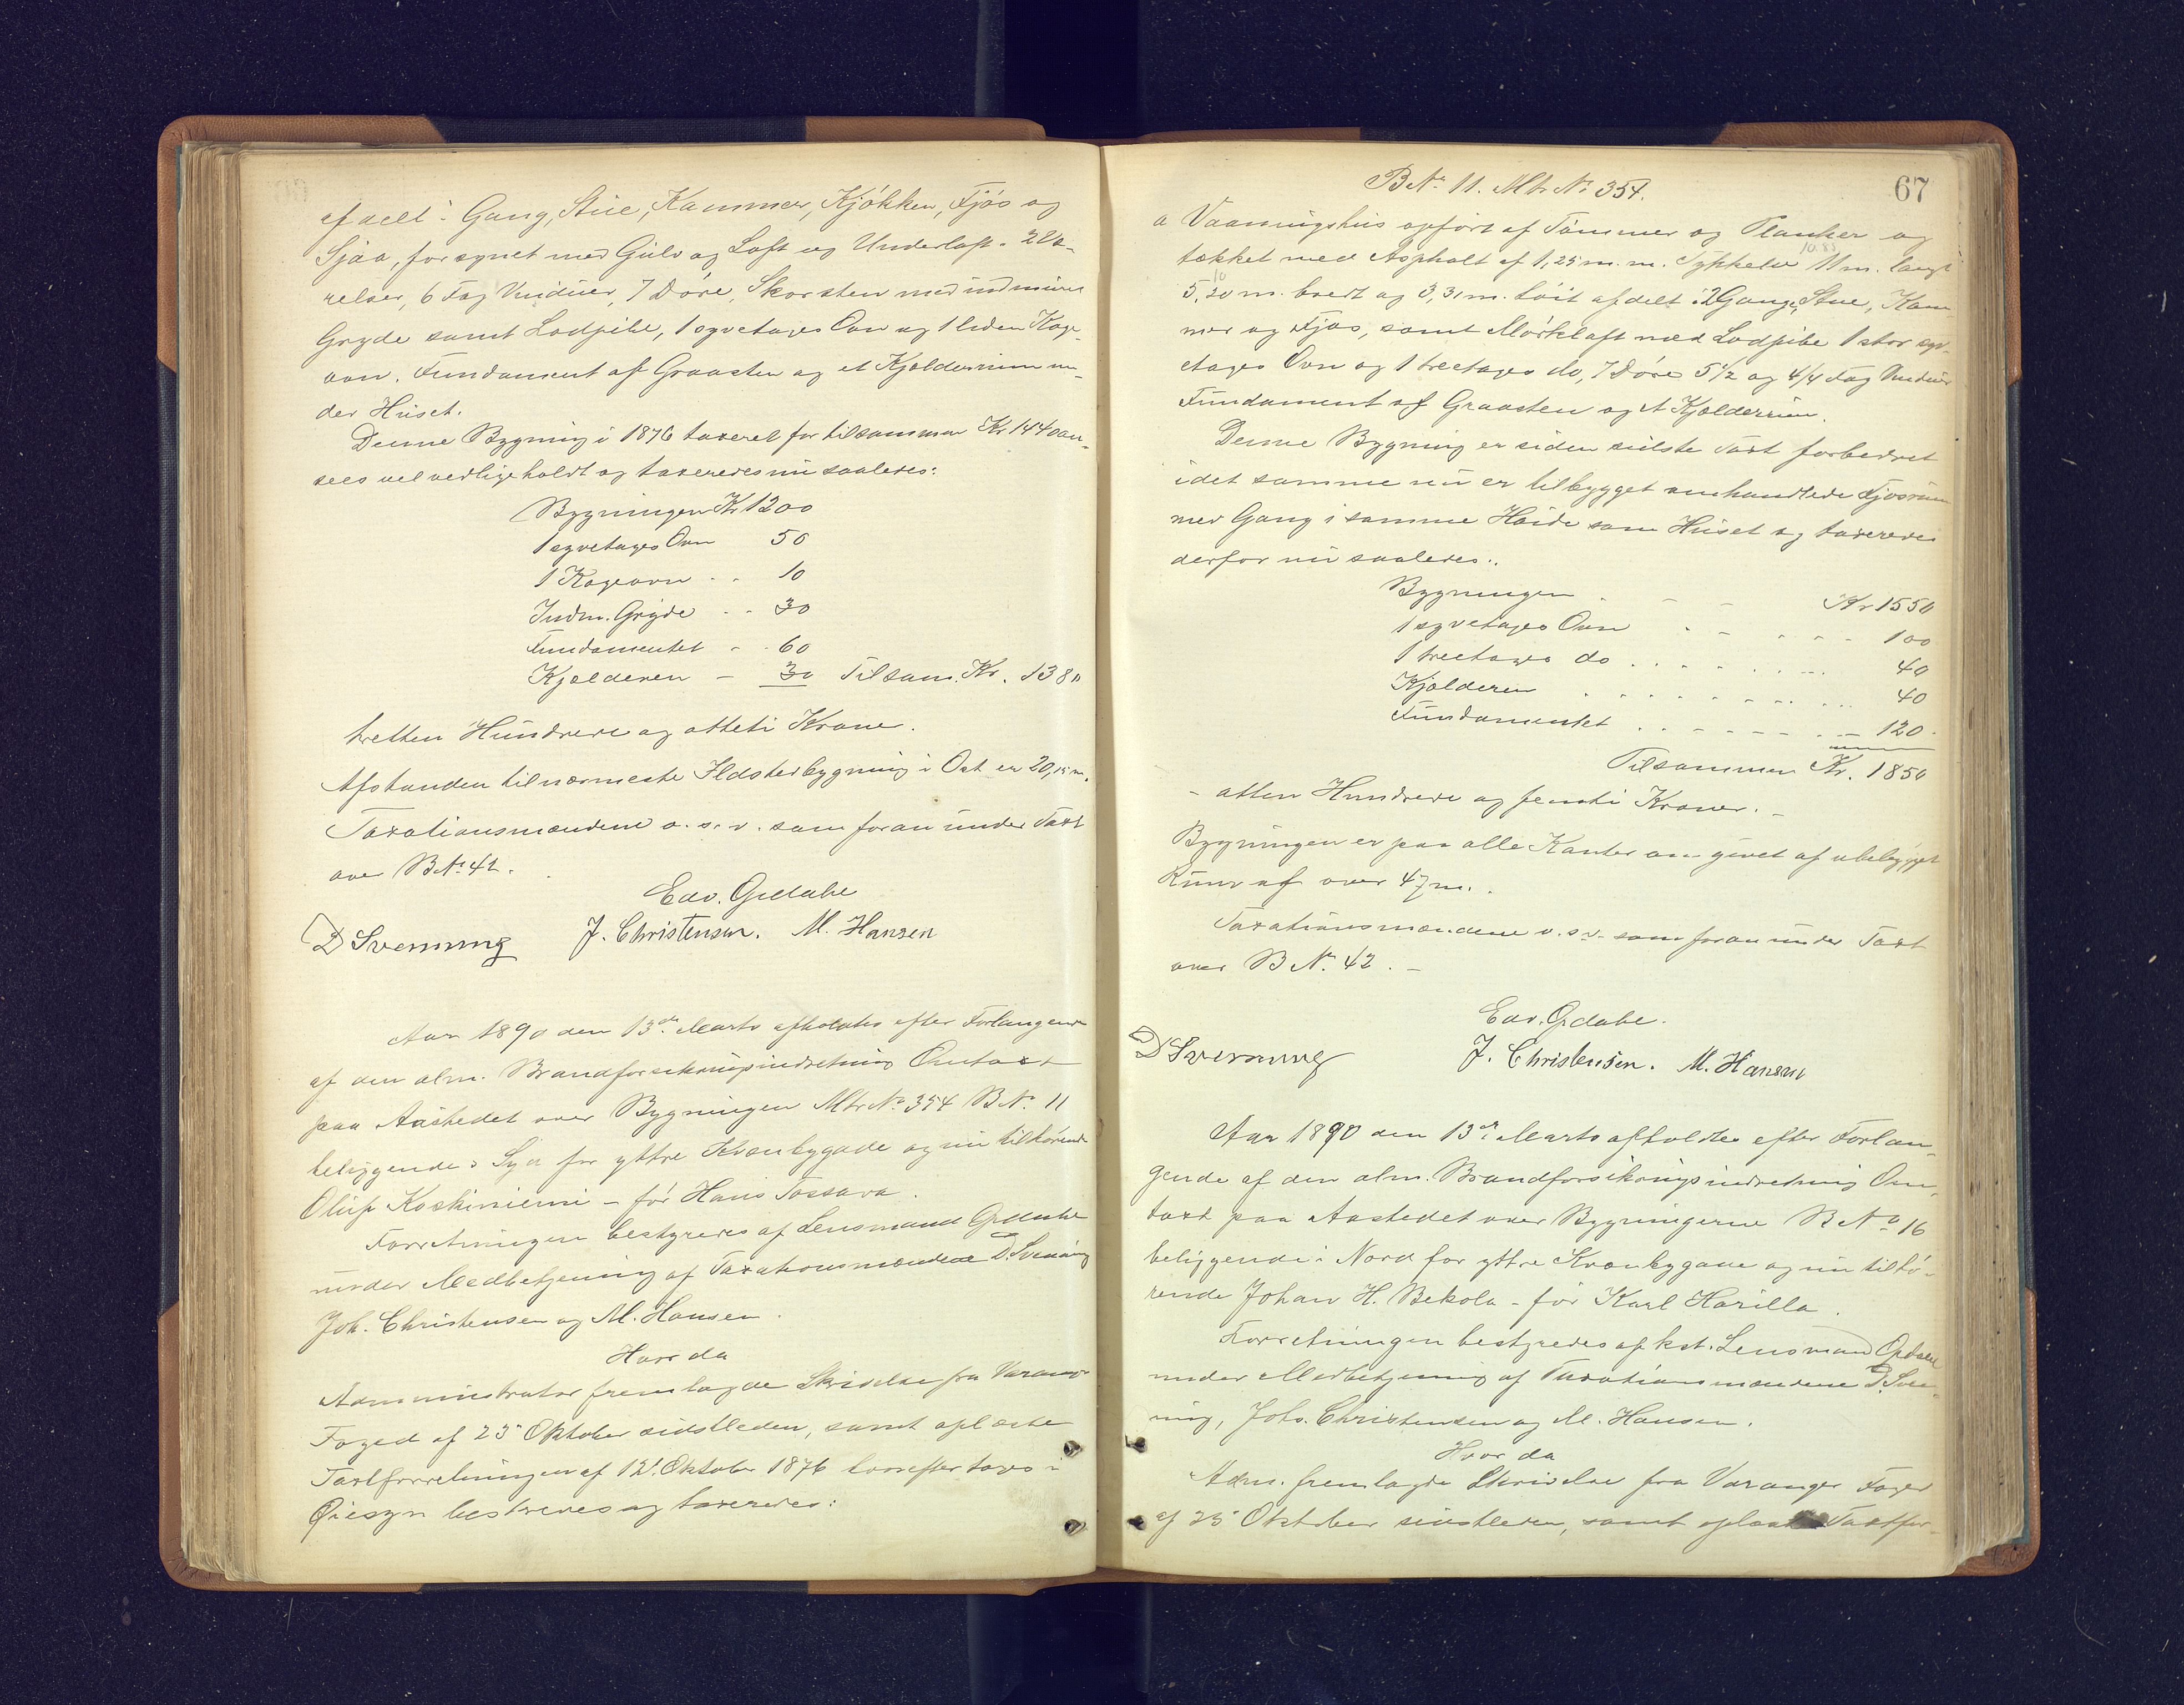 afdelt i Gang, Stue, Kammer, Kjøkken, Fjøs og
Sjaa, forsynet med Gulv og Loft og Underloft. 2 Væ-
relser, 6 Fag Vinduer, 7 Døre, Skorsten med indmuret
Gryde samt Lodpibe, 1 syvetages Ovn og 1 liden Koge-
ovn. Fundament af Graasten og et Kjælderrum un-
der Huset.
Denne Bygning i 1876 taxeret for tilsammen Kr 1440 an-
sees vel vedligeholdt og taxeredes nu saaledes:
Bygningen Kr 1200
1 syvetages Ovn 50
1 Kogeovn - - 10
Indm. Gryde - - 30
Fundamentet - - 60
Kjælderen - 30 Tilsam. Kr. 1380
tretten Hundrede og otteti Krone.
Afstanden til nærmeste Ildstedbygning i Ost er 20,15 m.
Taxationsmændene o. s. v. som foran under Taxt
over B№ 42.
Edv. Opdahl
D Svenning J. Christensen. M. Hansen
Aar 1890 den 13de Marts afholdtes efter Forlangende
af den alm. Brandforsikringsindretning Omtaxt
paa Aastedet over Bygningen Mtr№ 354 B№ 11
beliggende i Syd for yttre Kvænbygade og nu tilhørende
Oluf Koskiniemi - før Hans Tossava.
Forretningen bestyredes af Lensmand Opdahl
under Medbetjening af Taxationsmændene D. Svenning
Joh. Christensen og M. Hansen.
Hvor da
Administrator fremlagde Skrivelse fra Varanger
Foged af 25 Oktober sidstleden, samt oplæste
Taxtforretningen af 12. Oktober 1876 hvorefter toges i
Øiesyn beskreves og taxeredes:
67
B№ 11. Mtr№ 354.
a Vaaningshus opført af Tømmer og Planker og
tækket med Asphalt af 1,25 m.m. Tykkelse 10.83 11 m. langt
10
5,20 m. bredt og 3,31 m. høit afdelt i 2 Gange, Stue, Kam-
mer og Fjøs, samt Mørkloft med Lodpibe 1 stor syv-
etages Ovn og 1 treetages do, 7 Døre 5 1/2 og 4/4 Fag Vinduer
Fundament af Graasten og et Kjælderrum.
Denne Bygning er siden sidste Taxt forbedret
idet samme nu er tilbygget omhandlede Fjøsrum
med Gang i samme Høide som Huset og taxeredes
derfor nu saaledes:
Bygningen - - - Kr 1550
1 syvetages Ovn - - - 100
1 treetages do - - - 40
Kjælderen - - - 40
Fundamentet - - - 120.
Tilsammen Kr. 1850
- atten Hundrede og femti Kroner. -
Bygningen er paa alle Kanter omgivet af ubebygget
Rum af over 47 m.
Taxationsmændene o. s. v. som foran under Taxt
over B№. 42. -
Edv. Opdahl.
D Svenning J. Christensen. M. Hansen
Aar 1890 den 13de Marts afholdtes efter Forlan-
gende af den alm. Brandforsikringsindretning Om-
taxt paa Aastedet over Bygningerne B№ 16
beliggende i Nord for yttre Kvænbygade og nu tilhø-
rende Johan H. Bekola - før Karl Harilla.
Forretningen bestyredes af kst. Lensmand Opdahl
under Medbetjening af Taxationsmændene D. Sven-
ning, Johs. Christensen og M. Hansen.
Hvor da
Adm. fremlagde Skrivelse fra Varanger Foged
af 25 Oktober sidstleden, samt oplæste Taxtfor-